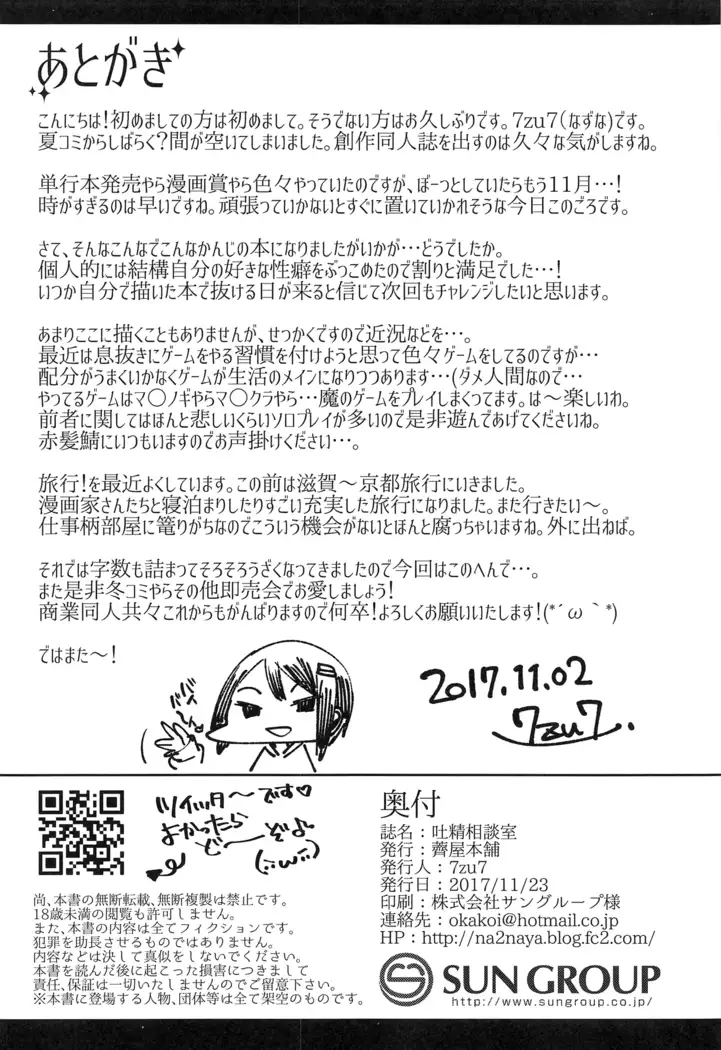 あとがき
こんにちは!初めましての方は初めまして。そうでない方はお久しぶりです。7zu7(なずな)です。
夏コミからしばらく?間が空いてしまいました。創作同人誌を出すのは久々な気がしますね。
単行本発売やら漫画賞やら色々やっていたのですが、ぼーっとしていたらもう11月…!
時がすぎるのは早いですね。頑張っていかないとすぐに置いていかれそうな今日このごろです。
さて、そんなこんなでこんなかんじの本になりましたがいかが…どうでしたか。
個人的には結構自分の好きな性癖をぶっこめたので割りと満足でした…!
いつか自分で描いた本で抜ける日が来ると信じて次回もチャレンジしたいと思います。
あまりここに描くこともありませんが、せっかくですので近況などを…。
最近は息抜きにゲームをやる習慣を付けようと思って色々ゲームをしてるのですが…
配分がうまくいかなくゲームが生活のメインになりつつあります…(ダメ人間なので…
やってるゲームはマ〇ノギやらマ〇クラやら…魔のゲームをプレイしまくってます。は〜楽しいわ。
前者に関してはほんと悲しいくらいソロプレイが多いので是非遊んであげてくださいね。
赤髪鯖にいつもいますのでお声掛けください…。
旅行!を最近よくしています。この前は滋賀〜京都旅行にいきました。
漫画家さんたちと寝泊まりしたりすごい充実した旅行になりました。また行きたい〜。
仕事柄部屋に篭りがちなのでこういう機会がないとほんと腐っちゃいますね。外に出ねば。
それでは字数も詰まってそろそろうざくなってきましたので今回はこのへんで…。
また是非冬コミやらその他即売会でお愛しましょう!
商業同人共々これからもがんばりますので何卒!よろしくお願いいたします!(*´ω｀*)
ではまた〜!
バイバイ
2017.11.02
7zu7.
ツイッターです♡
よかったら
ど〜ぞよ
(:ω:)
奥付
誌名：吐精相談室
発行：薺屋本舗
発行人：7zu7
発行日：2017/11/23
印刷：株式会社サングループ様
連絡先：okakoi@hotmail.co.jp
HP：http://na2naya.blog.fc2.com/
SUN GROUP
http://www.sungroup.co.jp/
尚、本書の無断転載、無断複製は禁止です。
18歳未満の閲覧も許可しません。
また、本書の内容は全てフィクションです。
犯罪を助長させるものではありません。
内容などは決して真似をしないでください。
本書を読んだ後に起こった損害につきまして
責任、保証は一切いたしませんのでご留意下さい。
※本書に登場する人物、団体等は全て架空のものです。